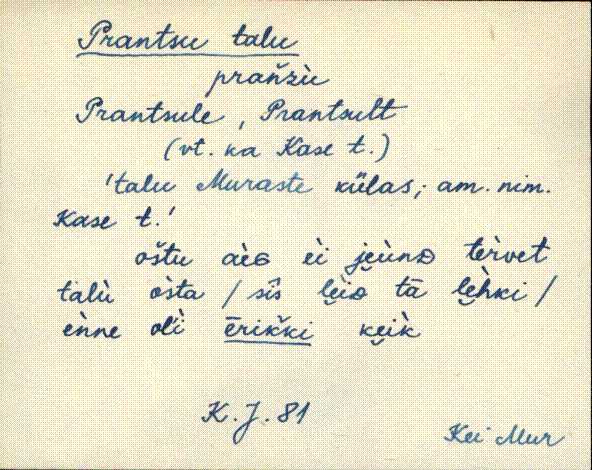 Prantsu talu
prañzù
Prantsule, Prantsult
(vt. ka Kase t.)
'talu Muraste külas; am. nim.
Kase t.'
oštu aèɢ èi jeùnᴅ tèrvet
talù òsta / sī̀s leiᴅ tā lèhki /
ènne olì ērikški keìk
K. J. 81
Kei Mur